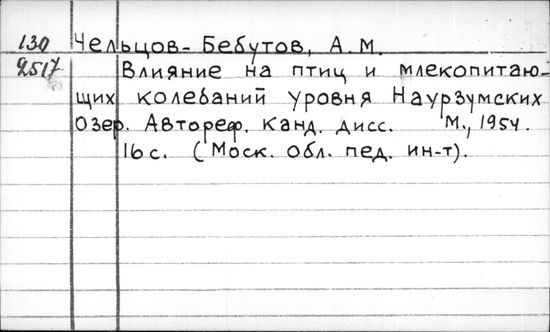 130 Чельцов-Бебутов, А.М.
2517 Влияние на птиц и млекопитаю-
щих колебаний уровня Наурзумских
озер. Автореф. канд. дисс. М., 1954.
16 с. (Моск. обл. пед. ин-т).